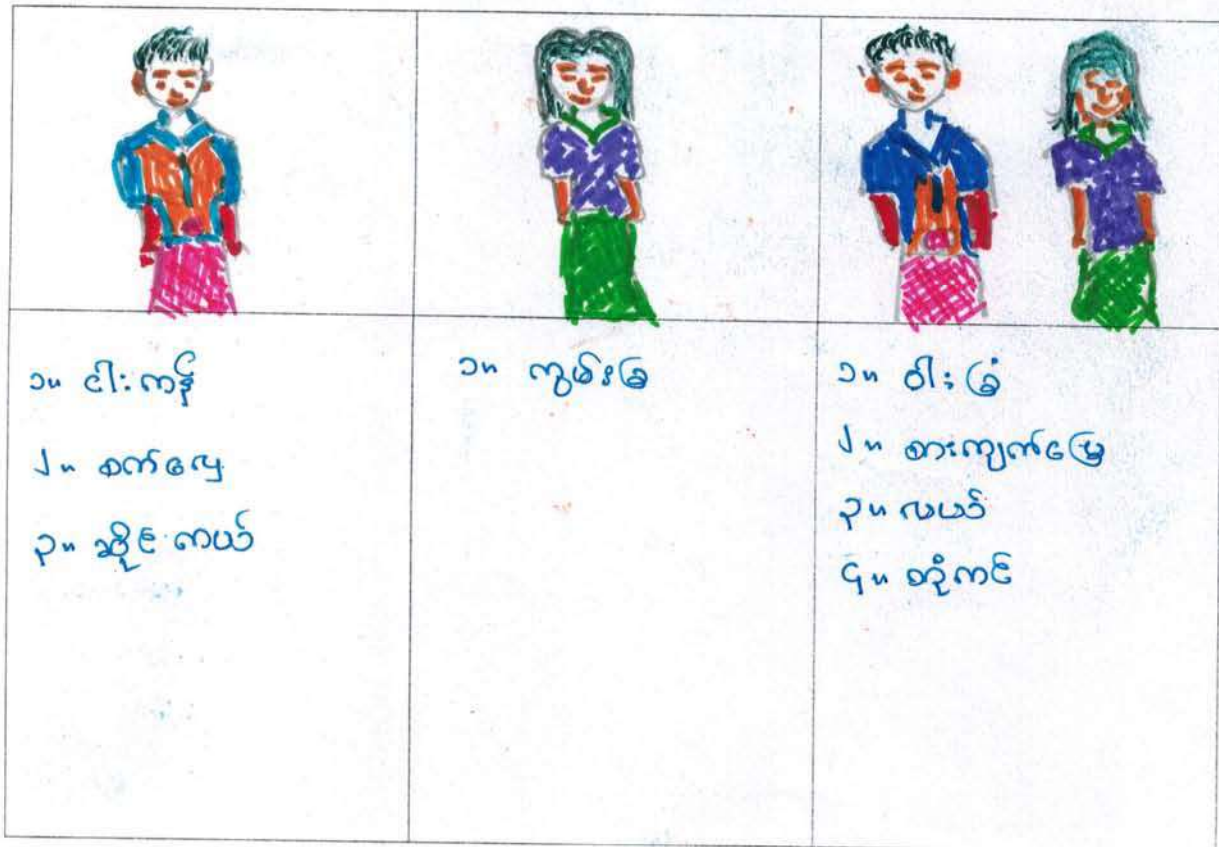 ၁။ ငါးကန်
၂။ စက်လှေ
၃။ ဆိုင်ကယ်
၁။ ကွမ်းခြံ
၁။ ဝါးခြံ
၂။ စားကျက်မြေ
၃။ လယ်
၄။ တိုကင်